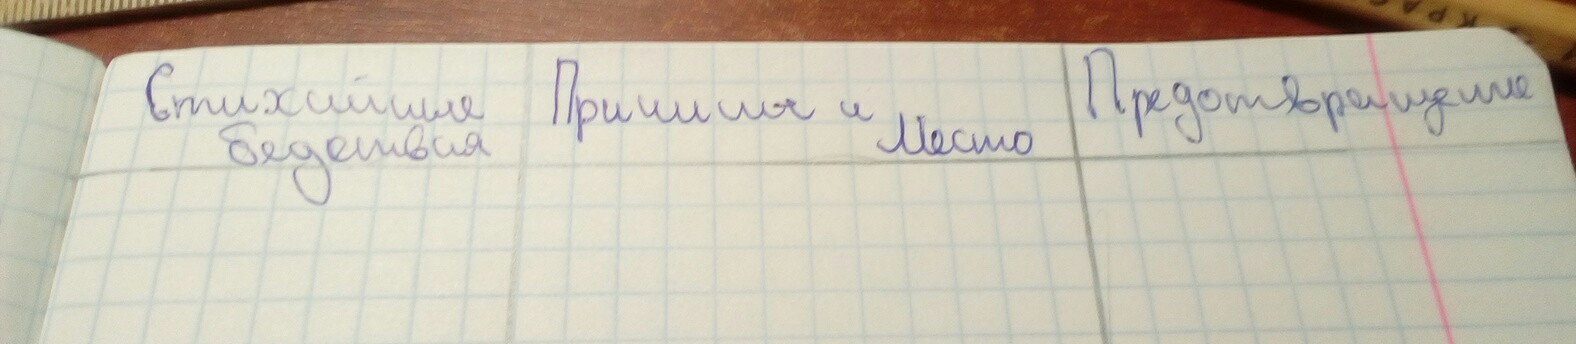 Стихийные
бедствия
Причины и
Место
Предотвращение
КРА